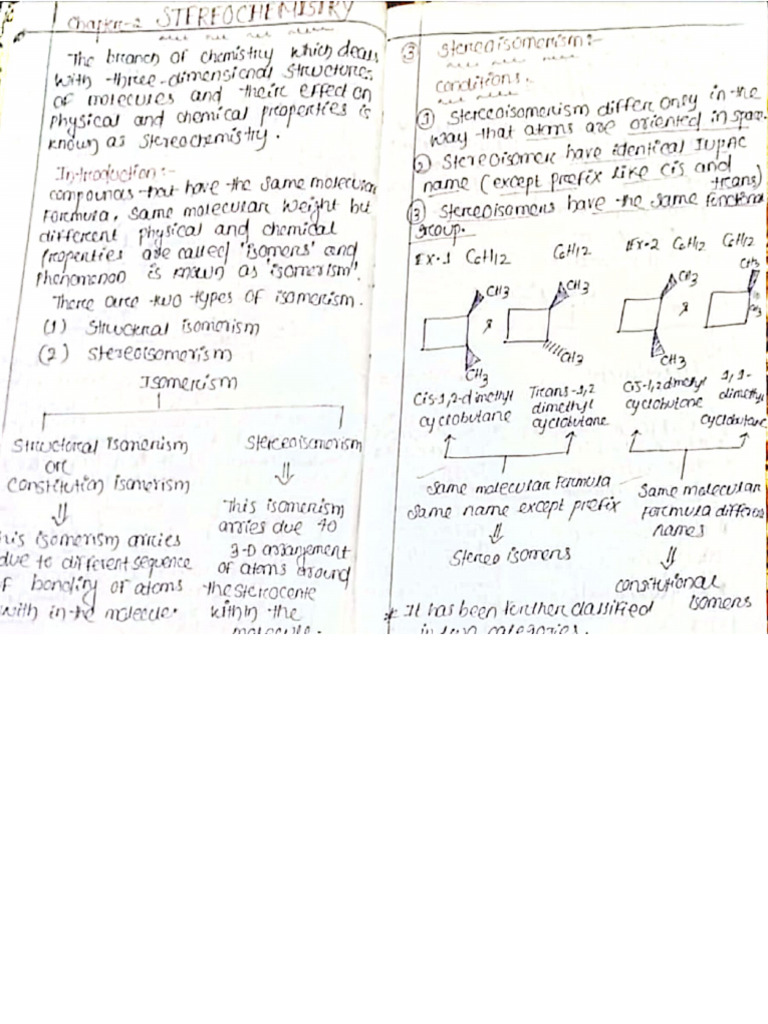 Chapter-2 STEREOCHEMISTRY
The branch of chemistry which deals
with three-dimensional structure
of molecules and their effect on
physical and chemical properties is
known as stereochemistry.
Introduction:-
compounds that have the same molecular
formula, same molecular weight but
different physical and chemical
properties are called 'isomers' and
phenomenon is known as 'isomerism'.
There are two types of isomerism.
(1) Structural isomerism
(2) stereoisomerism
Isomerism
Structural Isomerism
or
Constitution isomerism
This isomerism arries
due to different sequence
of bonding of atoms
with in the molecule.
Stereoisomerism
This isomerism
arries due to
3-D arrangement
of atoms around
the sterocente
within the
molecule.
③ Stereoisomerism:-
conditions.
① Stereoisomerism differ only in the
way that atoms are oriented in space.
② Stereoisomer have identical IUPAC
name (except prefix like cis and
trans)
③ Stereoisomers have the same functional
group.
Ex.1 C6H12 C6H12 Ex.2 C6H12 C6H12
CH3 CH3 CH3 CH3
CH3 CH3 CH3 CH3
Cis-1,2-dimethyl Trans-1,2 Cis-1,2dimethyl 1,1-
cyclobutane dimethyl cyclobutane dimethyl
cyclobutane cyclobutane
Same molecular formula
Same name except prefix
Stereo isomers
Same molecular
formula different
names
constitutional
isomers
* It has been further classified
in two categories.